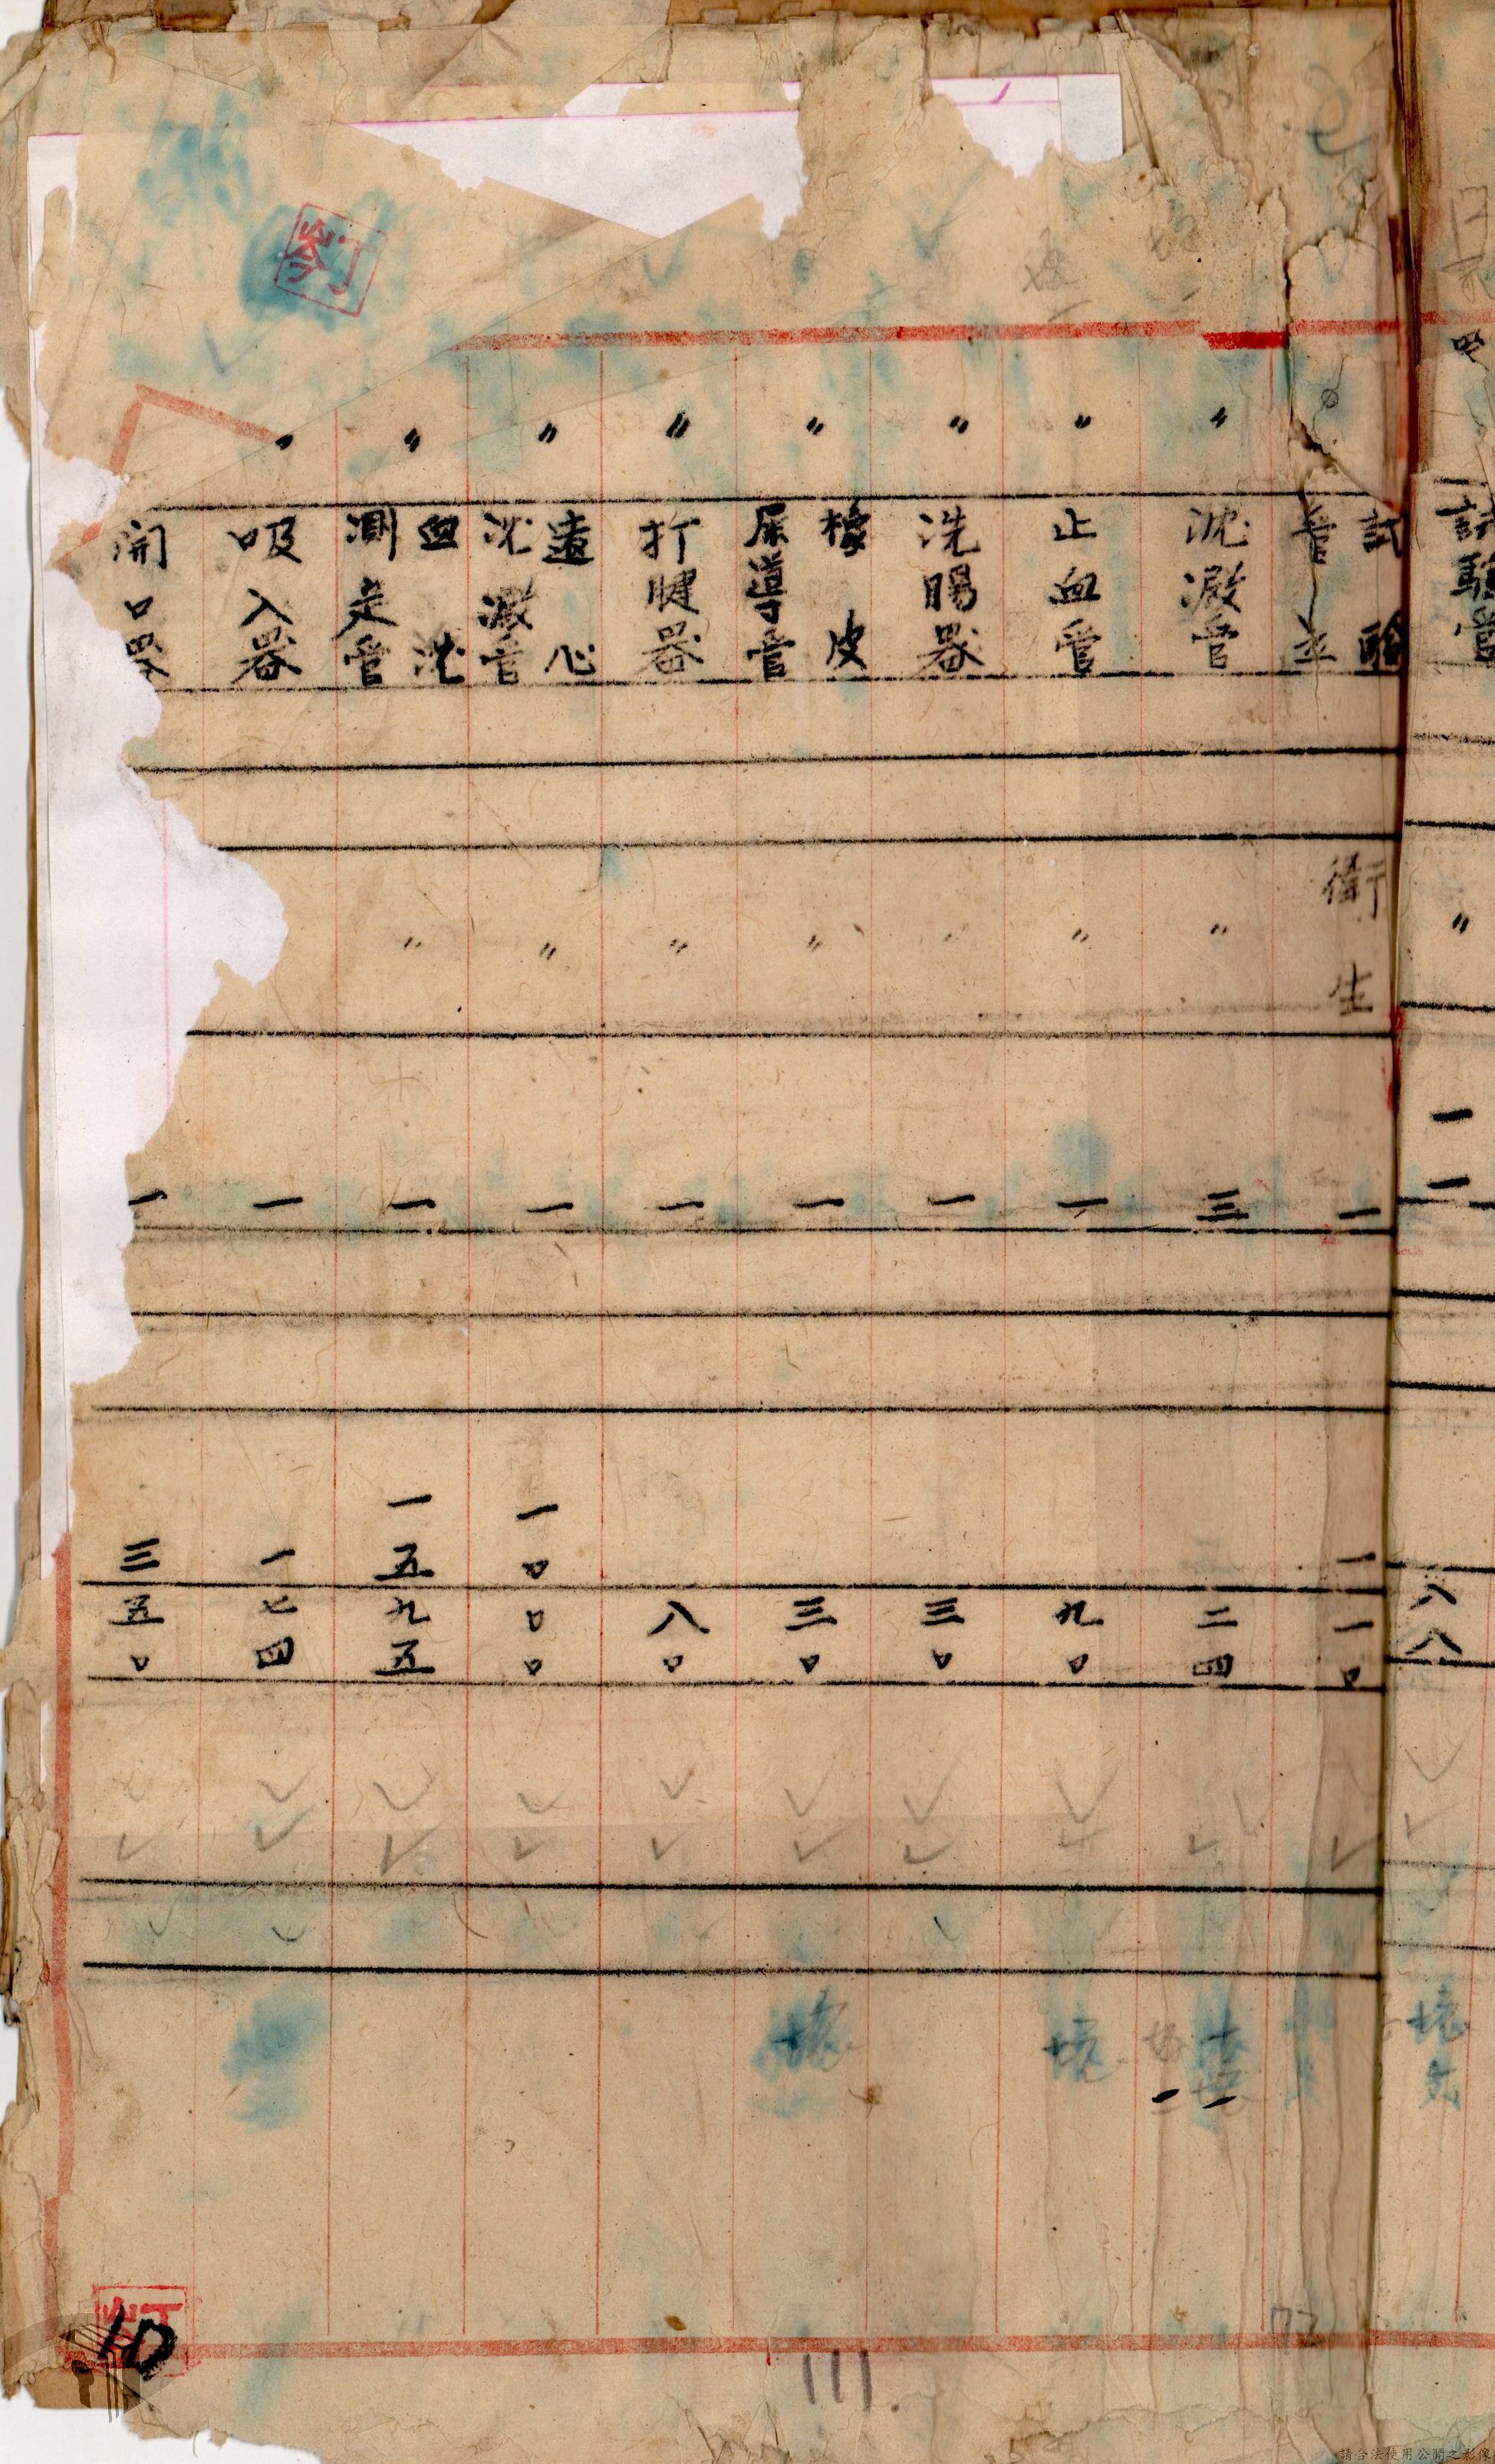 甲 試驗管 〃 一一 八八
試驗管立 衛生 一 一一〇
〃 沈澱管 〃 三 二四
〃 止血管 〃 一 九〇
〃 洗腸器 〃 一 三〇
〃 橡皮尿導管 〃 一 三〇
〃 打腱器 〃 一 八〇
〃 遠心沈澱管 〃 一 一〇〇〇
〃 血沈測定管 〃 一 一五九五
〃 吸入器 一 一七四
開口器 一 三五〇
10
111
72
請合法使用公開之影像